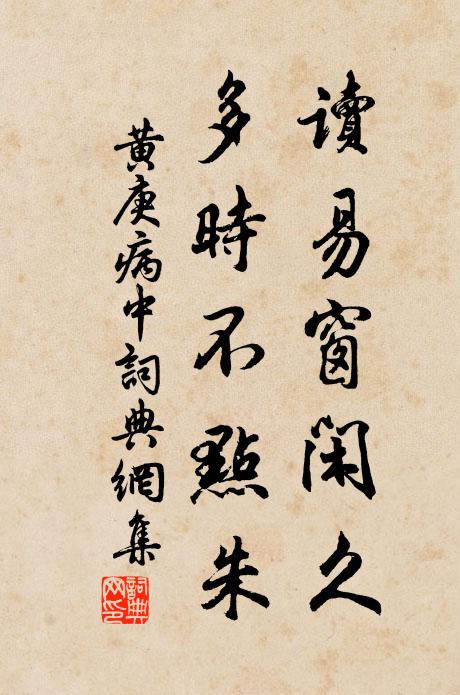 讀易窗閑久
多時不點朱
黃庚病中詞典網集
詞典
网印